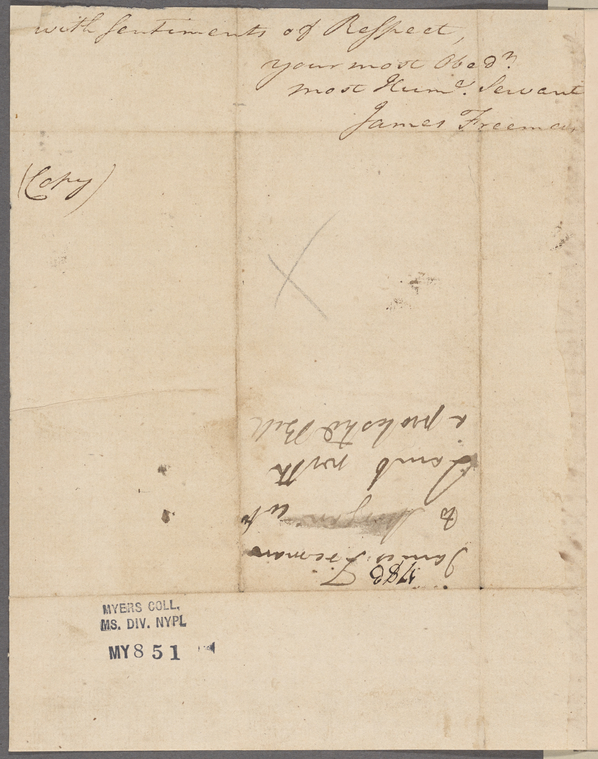 with Sentiments of Respect,
your most Obedn.
most Humc. Servant
James Freeman
(Copy)
1786
James Freeman
to
Lamb with
a protested Bill
MYERS COLL.
MS. DIV. NYPL
MY 8 51